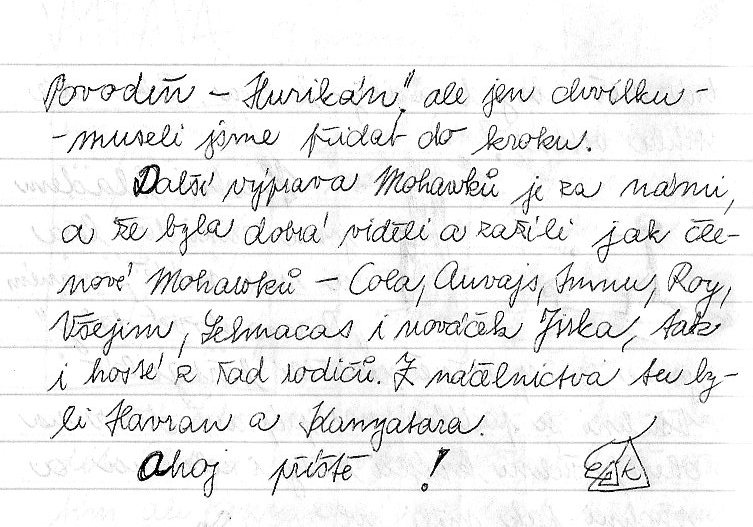 Povodíň - Hurikán", ale jen chvilku -
- museli jsme přidat do kroku.
Další výprava Mohawků je za námi,
a že byla dobrá viděli a zažili jak čle-
nové Mohawků - Cola, Auvajs, Roy,
Všejim, i nováček Jiska, tak
i hosté z řad rodičů. Z náčelnictva tu by-
li Havran a Kanyatara.
Ahoj příště !